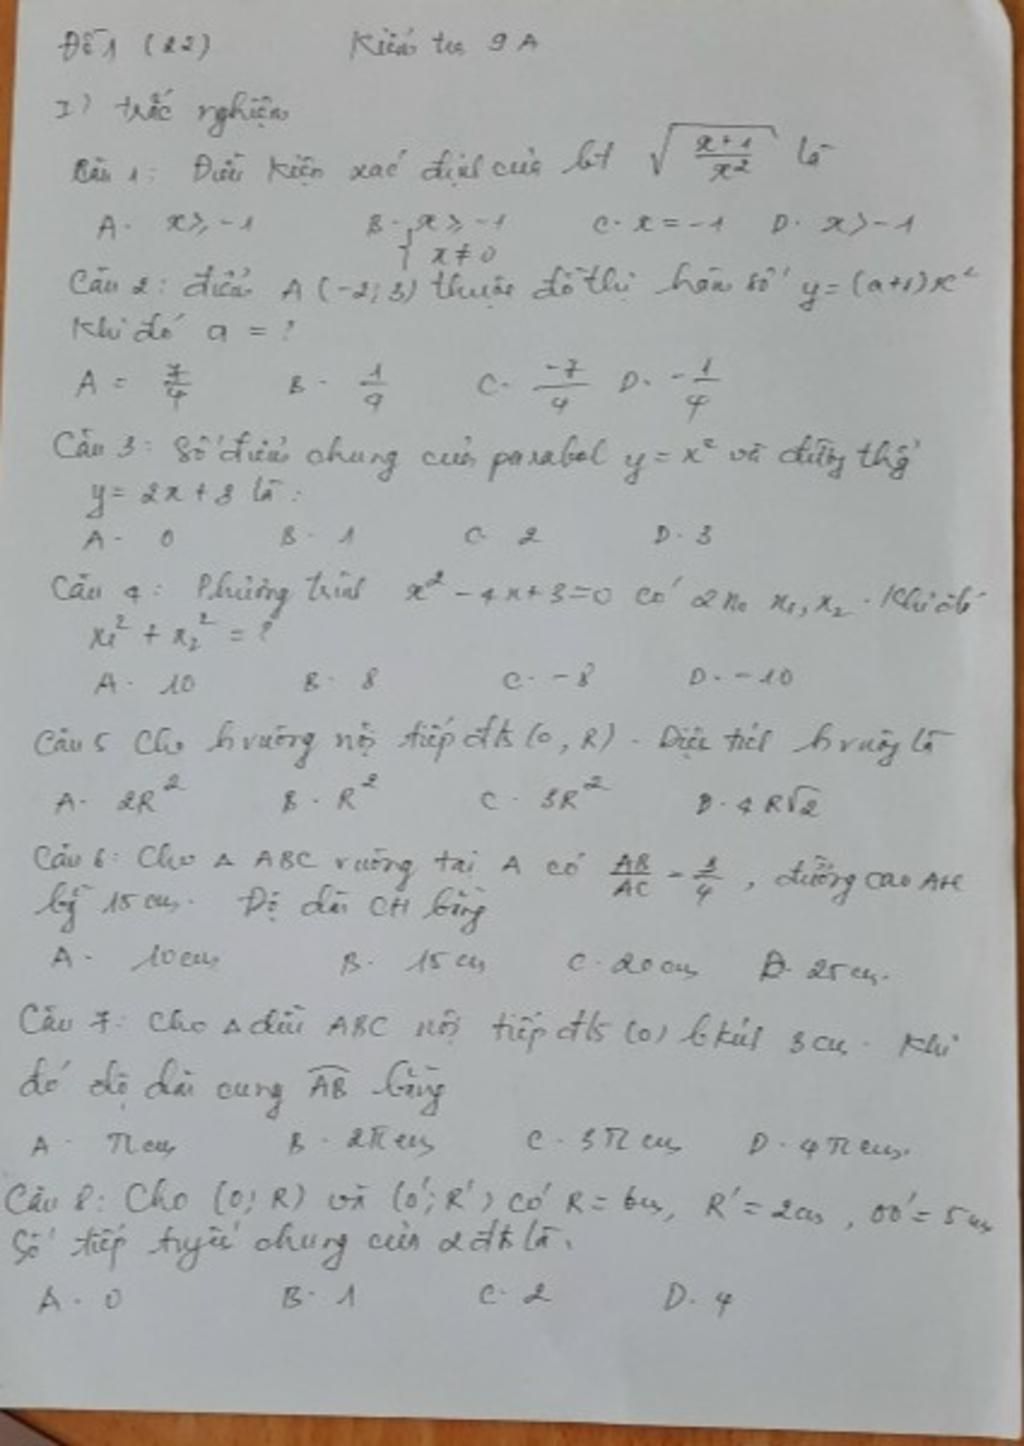 Đề 1 (22) Kiểm tra 9A
I) trắc nghiệm
Câu 1: Điều kiện xác định của bt √((x+1)/x²) là
A. x ≥ -1 B. { x ≥ -1 C. x = -1 D. x > -1
x ≠ 0
Câu 2: điểm A (-2; 3) thuộc đồ thị hàm số y = (a+1)x²
Khi đó a = ?
A = 7/4 B. 1/4 C. -7/4 D. -1/4
Câu 3: Số điểm chung của parabol y = x² và đường thg
y = 2x + 3 là:
A. 0 B. 1 C. 2 D. 3
Câu 4: Phương trình x² - 4x + 3 = 0 có 2 no x₁, x₂. Khi đó
x₁² + x₂² = ?
A. 10 B. 8 C. -8 D. -10
Câu 5 Cho hvuông nội tiếp đtr (O, R). Diện tích hvuông là
A. 2R² B. R² C. 3R² D. 4R√2
Câu 6: Cho Δ ABC vuông tại A có AB/AC = 3/4, đường cao AH
bg 15 cm. Độ dài CH bằng
A. 10cm B. 15 cm C. 20 cm D. 25 cm.
Câu 7: Cho Δ đều ABC nội tiếp đtr (O) bkính 3 cm. Khi
đó độ dài cung AB bằng
A. π cm B. 2π cm C. 3π cm D. 4π cm.
Câu 8: Cho (O; R) và (O'; R') có R = 6cm, R' = 2cm, OO' = 5cm
Số tiếp tuyến chung của 2 đtr là.
A. 0 B. 1 C. 2 D. 4